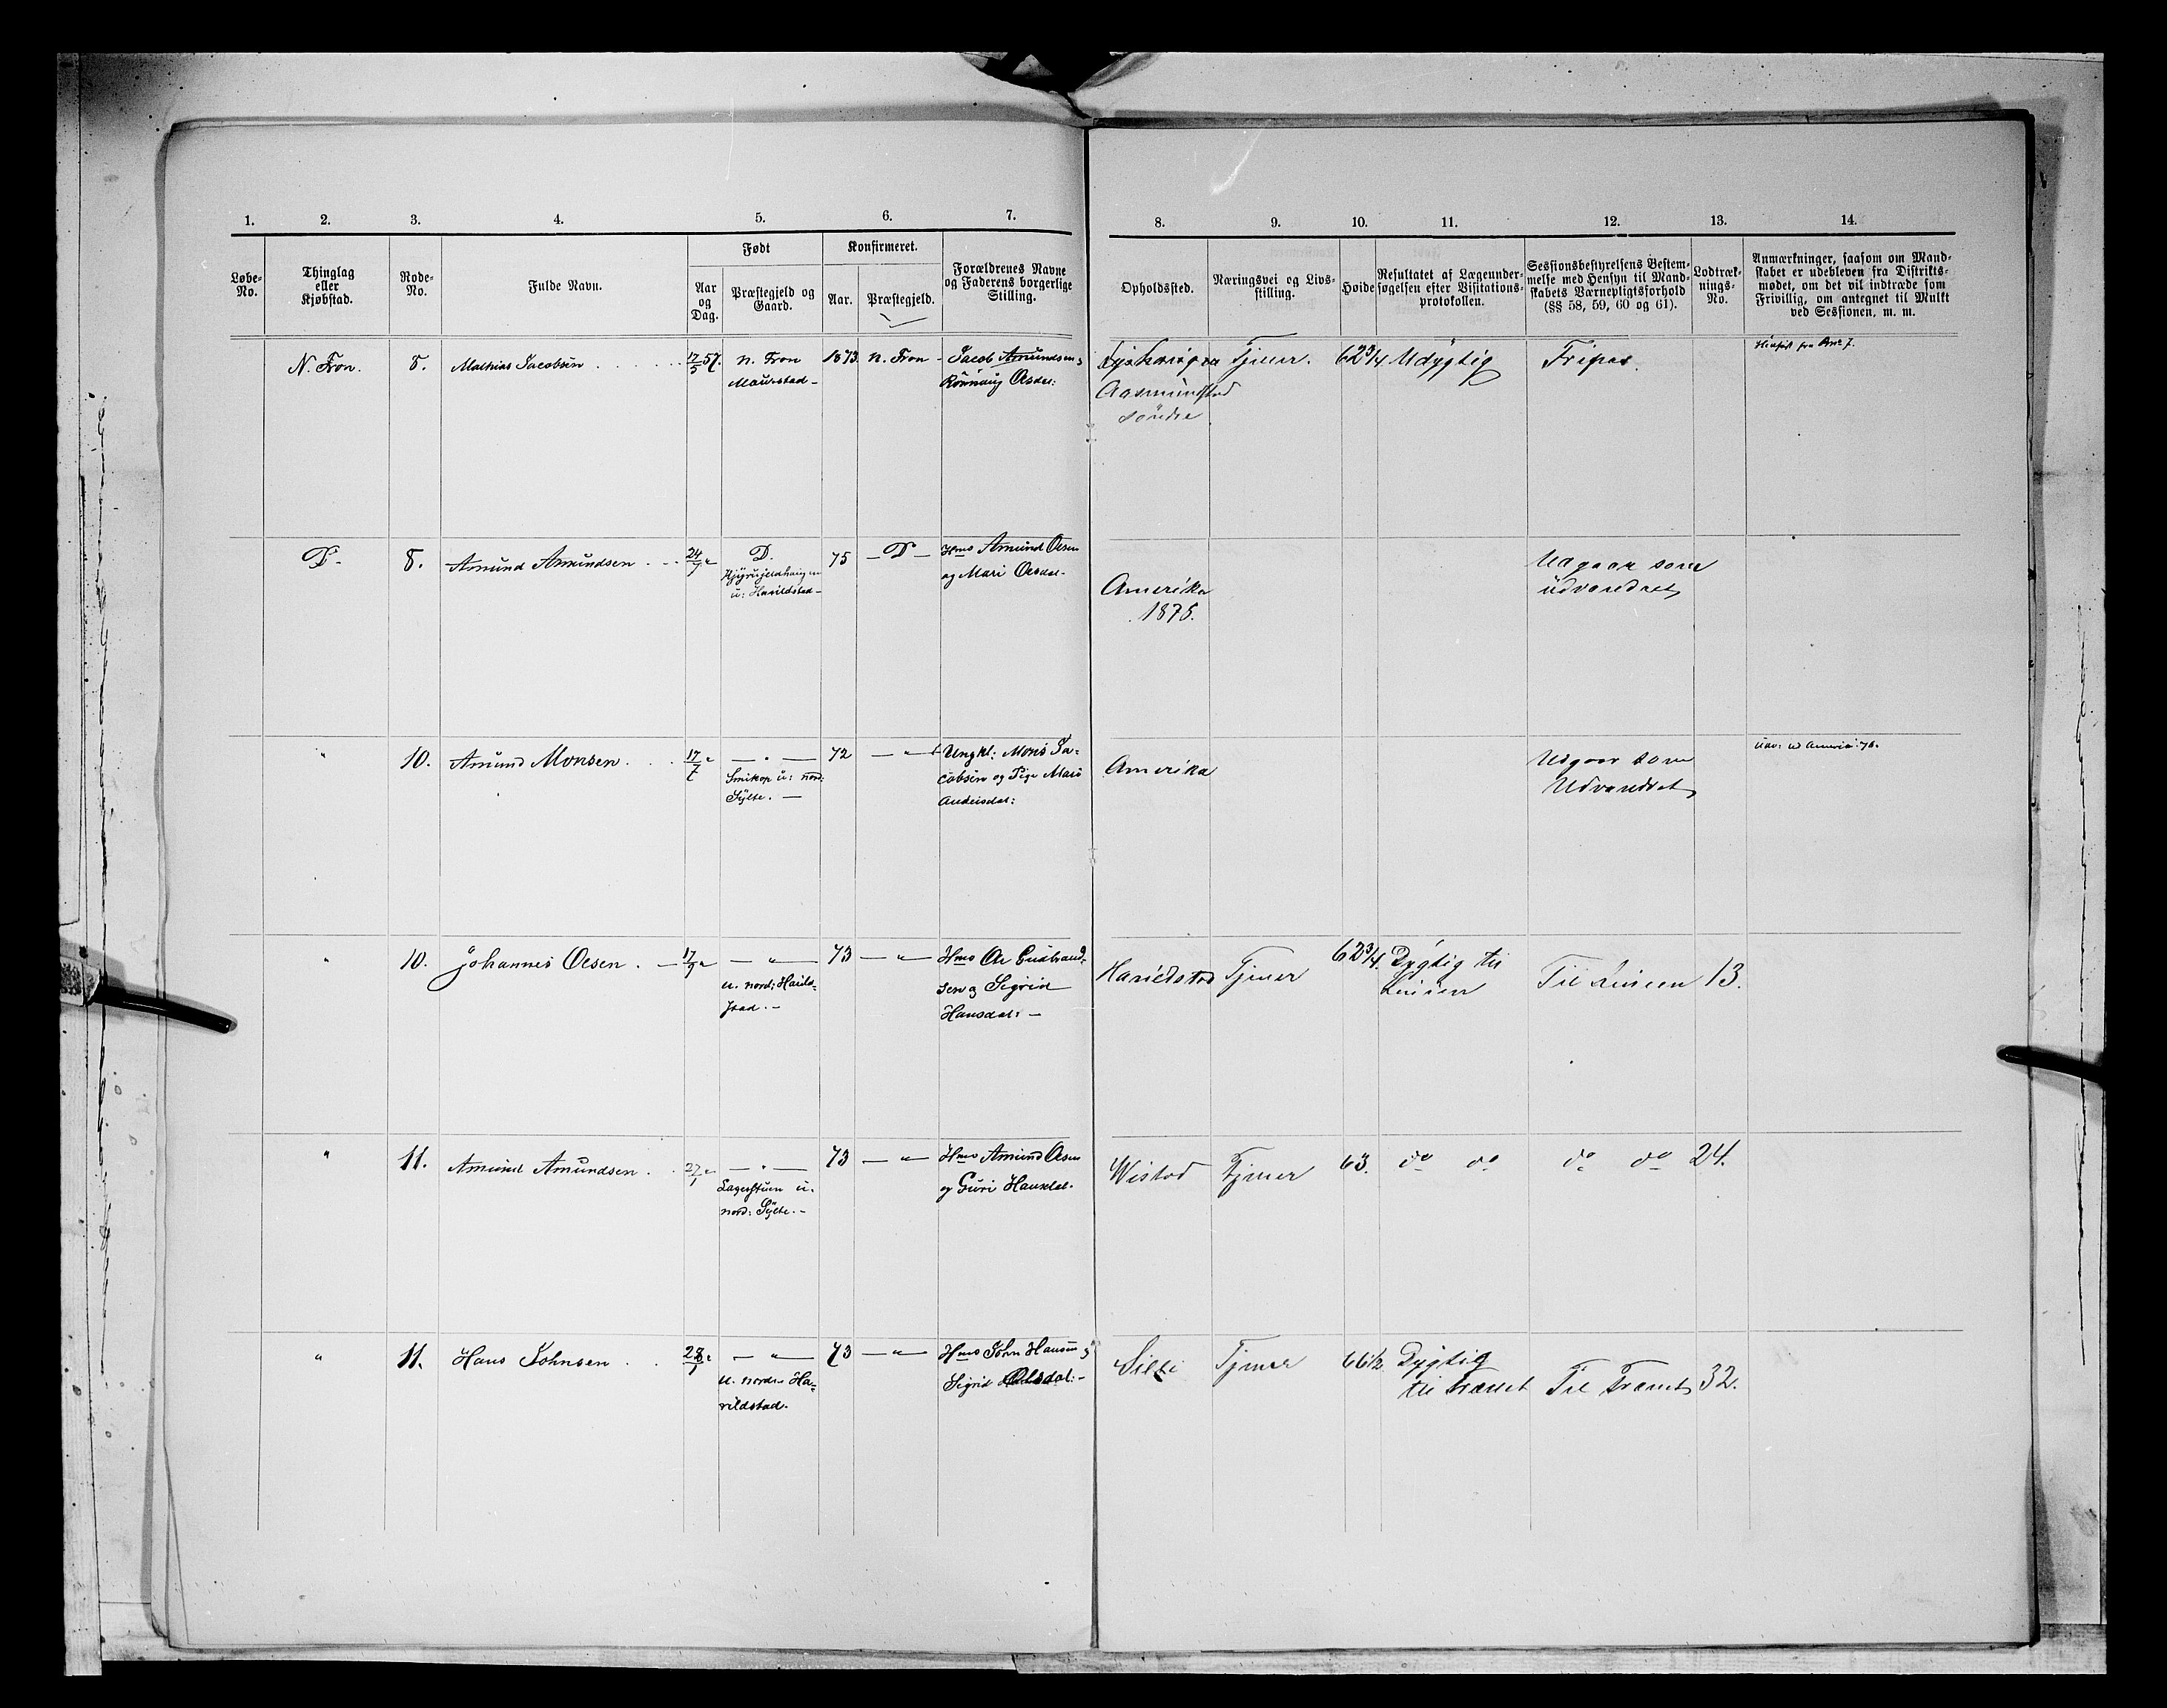 1. 2. 3. 4. 5. 6. 7. 8. 9. 10. 11. 12. 13. 14.
Løbe-
No.
Thinglag
eller
Kjøbstad.
Rode-
No.
Fulde Navn.
Født
Aar
og
Dag.
Præstegjeld og
Gaard.
Konfirmeret.
Aar.
Præstegjeld.
Forældrenes Navne
og Faderens borgerlige
Stilling.
Opholdssted.
Næringsvei og Livs-
stilling.
Høide
Resultatet af Lægeunder-
søgelsen efter Visitations-
protokollen.
Sessionsbestyrelsens Bestem-
melse med Hensyn til Mand-
skabets Værnepligtsforhold
(§§ 58, 59, 60 og 61).
Lodtræk-
nings-
No.
Anmærkninger, saasom om Mand-
skabet er udebleven fra Distrikts-
mødet, om det vil indtræde som
Frivillig, om antegnet til Mulkt
ved Sessionen, m. m.
N. Fron. 8. Mathias Jacobsen 17/5 57. N. Fron
Maurstad-
1873 N. Fron - Jacob Amundsen
Rönnaug Olsdat:
Aasmundstad
söndre
Tjener. 62 3/4 Udygtig Fripas.
D- 8. Amund Amundsen 24/7 " D.
u: Harildstad-
75 -D- Hmd Amund Olsen
og Mari Olsdat-
Amerika
1875.
Udgaar som
udvandret
" 10. Amund Monsen 17/7 " - " -
u: nord:
Sylte. -
72 - " - Ungkl: Mons Ja-
cobsen og Pige Mari
Andersdat:
Amerika
Udgaar som
Udvandret
" 10. Johannes Olsen. 17/9 " - " -
u. nord: Harild-
stad. -
73 - " - Hmd Ole Gudbrand-
sen og Sigrid
Hansdat: -
Harildstad Tjener 62 3/4. Dygtig til
Linien
Til Linien 13.
" 11. Amund Amundsen 27/1 " - " -
Lagerstuen u.
nord: Sylte. -
73 - " - Hmd Amund Olsen
og Guri Hansdat.
Wistad Tjener 63. do do do do 24.
" 11. Hans Johnsen 28/1 " - " -
u. nordre Ha-
rildstad.
73 - " - Hmd John Hansen
Sigrid Olsdat: -
Tjener 66 1/2 Dygtig
til Trænet
Til Trænet 32.